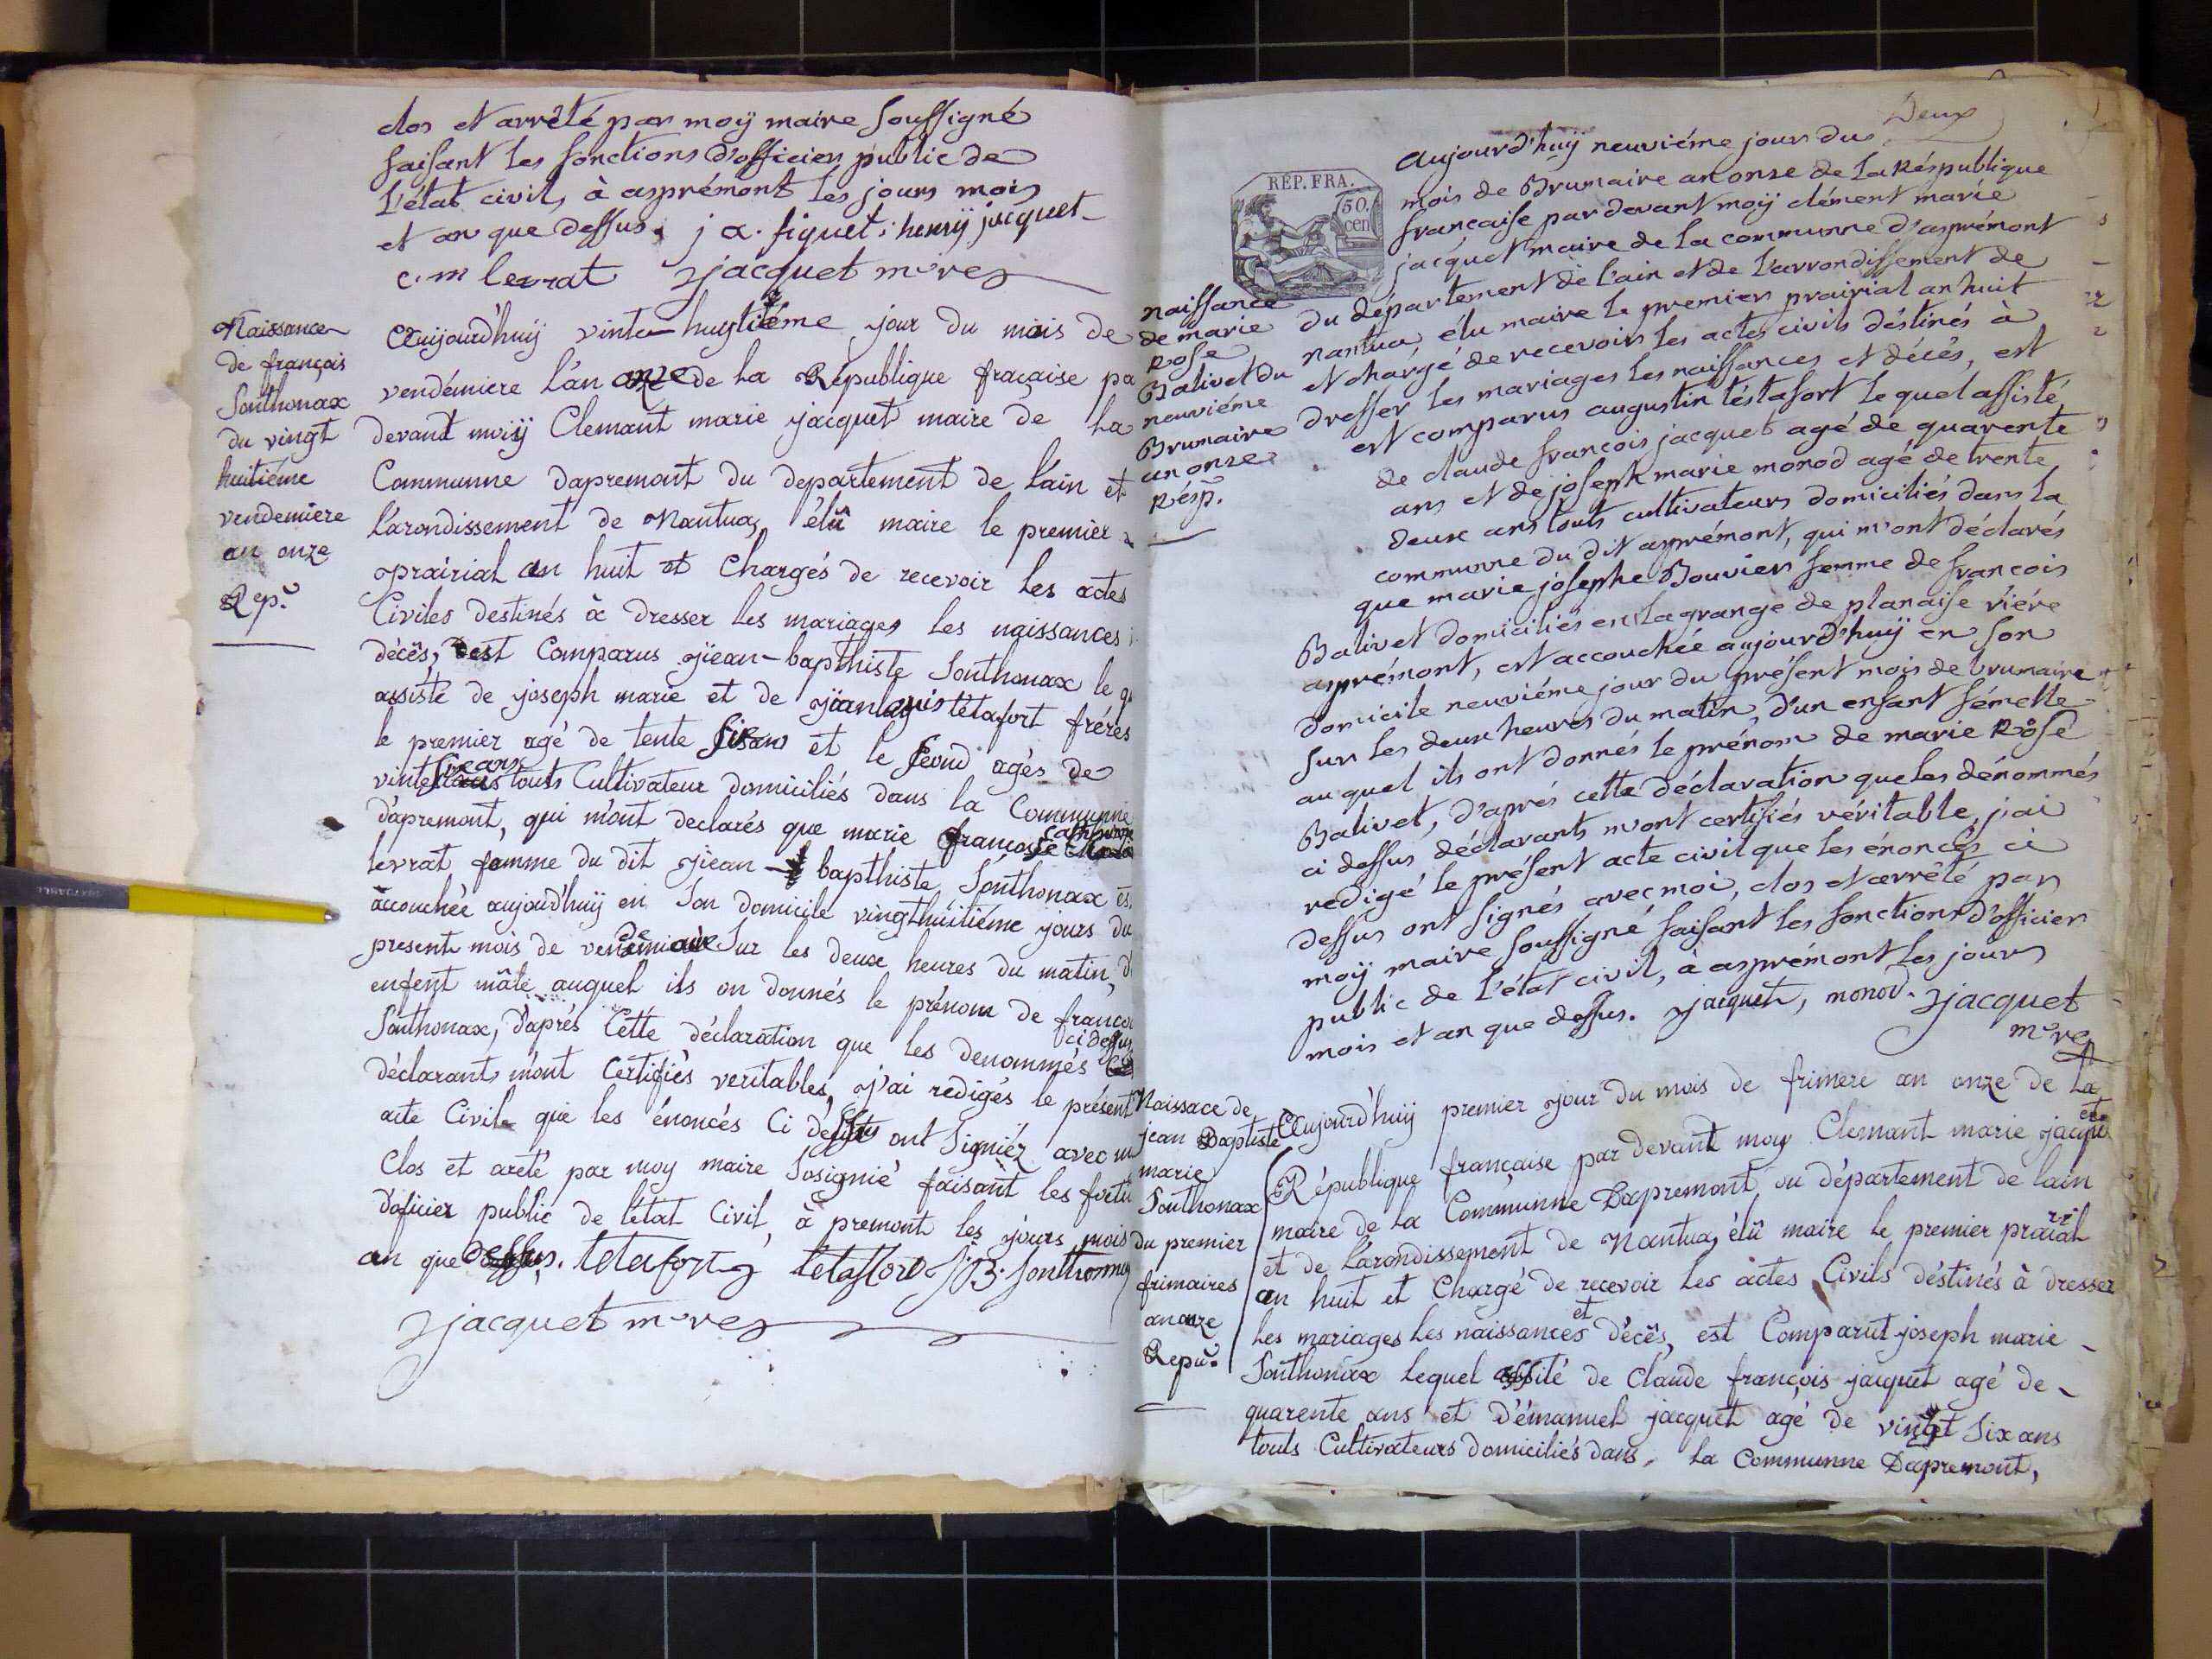 clos et arrêté par moÿ maire soussigné
faisant les fonctions d'officier public de
L'état civil, à asprémont les jours mois
et an que dessus. j a. figuet ; henrÿ jacquet
c. m levrat jacquet m.re
Naissance
de françois
Sonthonax
du vingt
huitiéme
vendemiere
an onze
Rep.
Aujourd'huÿ vinte huytiéme jour du mois de
vendémiere l'an onze de la République fraçaise pa
devant moiÿ Clemant marie jacquet maire de la
Communne dapremont du departement de l'ain et
L'arondissement de Nantua, élû maire le premier
prairial an huit et Chargés de recevoir les actes
Civiles destinés à dresser les mariages les naissances
décës, est Comparus jiean-bapthiste Sonthonax le q
assisté de joseph marie et de jianlouis tétafort fréres
le premier agé de tente sixans et le seond agés de
vinte six ans touts Cultivateur domiciliés dans la Communne
d'apremont, qui m'ont declarés que marie francoise
levrat famme du dit jiean bapthiste Sonthonax es
accouchée aujourd'huÿ en Son domicile vingthuitiéme jours du
present mois de vendemiaire Sur les deuxe heures du matin, d
enfent mâle auquel ils on donnés le prénom de franco
Sonthonax, d'aprés Cette déclaration que les denommés ci dessus
déclarants m'ont Certifiés veritables, j'ai redigés le présent
acte Civile que les énoncés Ci dessus ont Signiéz avec m
Clos et areté par moy maire Sosignié faisant les
d'oficier public de l'état Civil, à premont les jours mois
an que dessus. tetafort tétaffort J B. Sonthonnax
jacquet m.re
Deux
RÉP. FRA.
50.
cen.
naissance
de marie
Rose
Balivet du
neuviéme
Brumaire
an onze
Résp.
aujourd'huÿ neuviéme jour du
mois de Brumaire an onse de La Réspublique
francaise par devant moÿ clément marie
jacquet maire de la communne d'asprémont
du département de l'ain et de L'arrondissement de
nantua élu maire le premier prairial an huit
et chargé de recevoir les actes civils déstinés à
dresser les mariages les naissances et décés, est
est comparus augustin téstafort le quel assisté
de claude francois jacquet agé de quarente
ans et de joseph marie monod agé de trente
deux ans touts cultivateurs domiciliés dans la
communne du dit asprémont, qui m'ont déclarés
que marie josephe Bouvier femme de francois
Balivet domiciliés en la grange de planaise riére
asprémont, est accouchée aujourd'huÿ en son
domicile neuviéme jour du présent mois de brumaire
sur les deux heures du matin, d'un enfant fémelle
auquel ils ont donnés le prénom de marie Rose
Balivet, d'aprés cette déclaration que les dénommés
ci dessus déclarants m'ont certifiés véritable, j'ai
redigé le présent acte civil que les énoncés ci
dessus ont signés avec moi, clos et arrêté par
moÿ maire soussigné faisant les fonctions d'officier
public de L'état civil, à asprémont les jours
mois et an que dessus. jacquet, monod. jacquet
m.re
Naissace de
jean Baptiste
marie
Sonthonax
du premier
frimaires
an onze
Repu.
Aujourd'huÿ premier jour du mois de frimere an onze de la
République française par devant moy Clemant marie jacquet
maire de la Communne Dapremont du département de lain
et de L'arondissement de Nantua, élû maire le premier prairial
an huit et Chargé de recevoir les actes Civils déstinés à dresser
les mariages les naissances et décës, est Comparut joseph marie
Sonthonax lequel assité de Claude françois jacquet agé de
quarente ans et d'émanuel jacquet agé de vingt Six ans
touts Cultivateurs domiciliés dans, la Communne Dapremont,